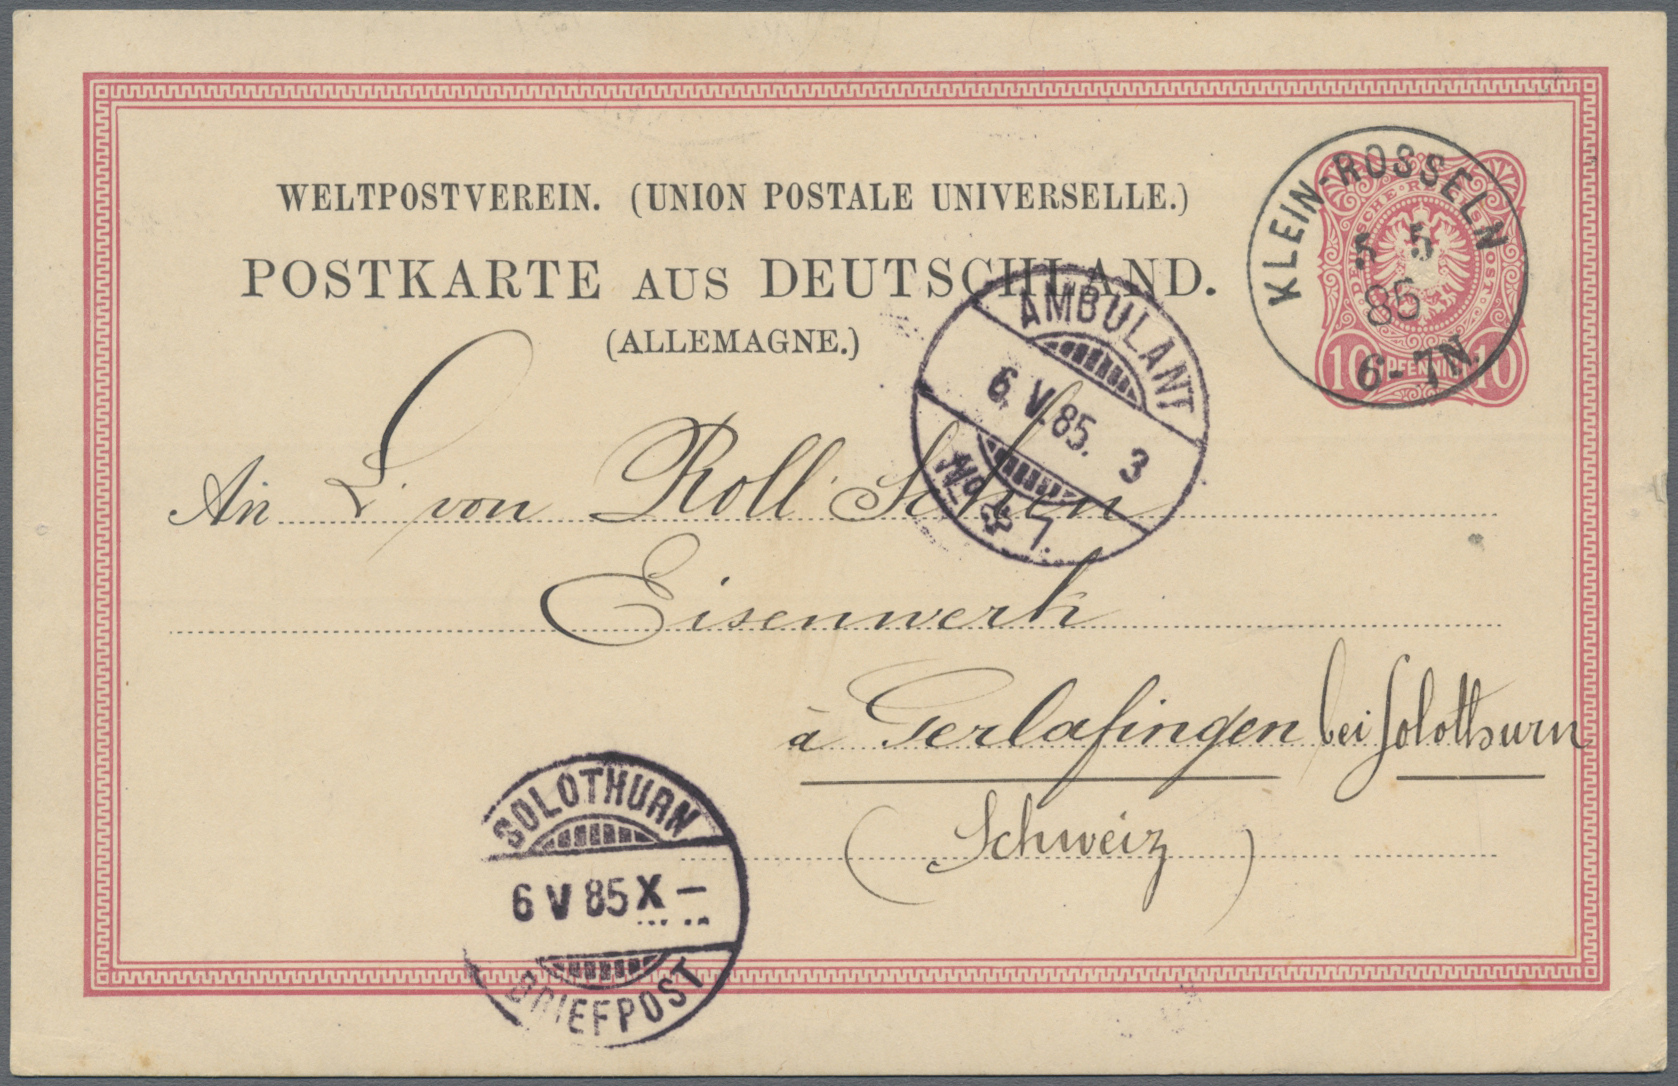 WELTPOSTVEREIN. (UNION POSTALE UNIVERSELLE.)
POSTKARTE AUS DEUTSCHLAND.
(ALLEMAGNE.)
KLEIN-ROSSELN
5 5
85
6-7N
DEUTSCHE REICHSPOST
10 PFENNIG 10
AMBULANT
6. V. 85. 3
No. 7.
An L. von Roll'schen
Eisenwerk
à Gerlafingen bei Solothurn
(Schweiz)
SOLOTHURN
6 V 85 X –
BRIEFPOST